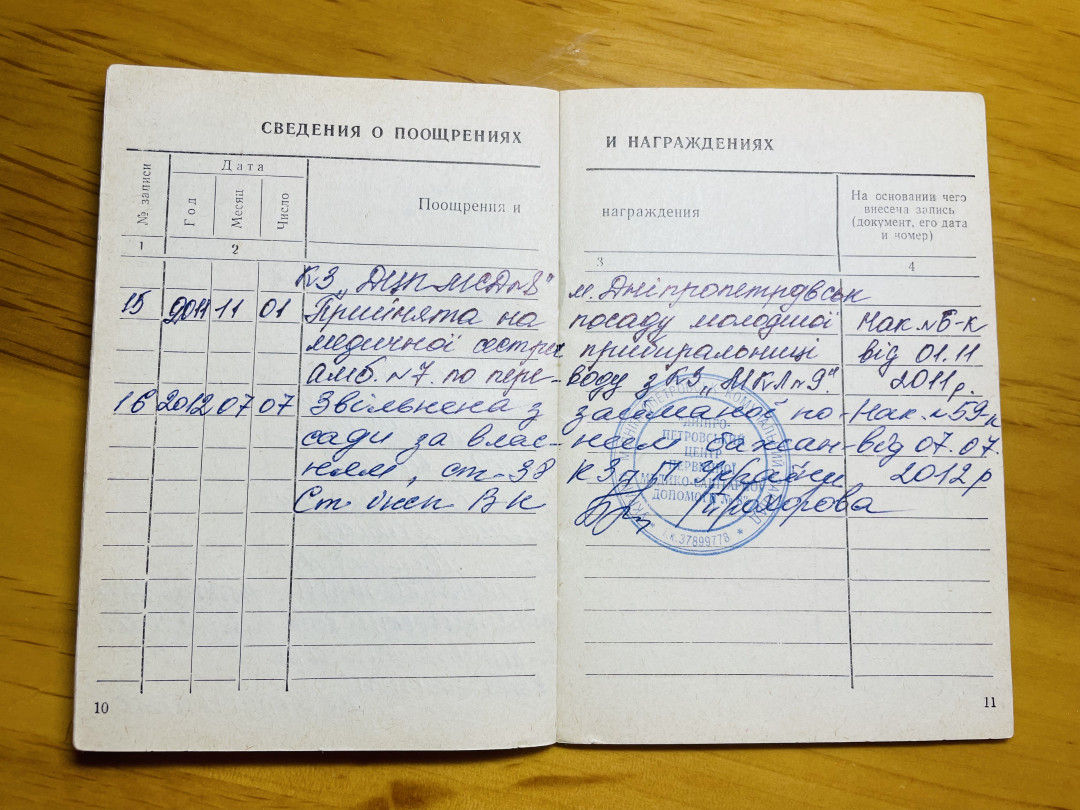 СВЕДЕНИЯ О ПООЩРЕНИЯХ И НАГРАЖДЕНИЯХ
№ записи
Дата
Год
Месяц
Число
Поощрения и награждения
На основании чего
внесена запись
(документ, его дата
и номер)
1 2 3 4
КЗ „ДЦПМСД №8" м. Дніпропетровськ
15 2011 11 01 Прийнята на посаду молодшої Нак. №6-к
медичної сестри прибиральниці від 01.11
амб. №7. по переводу з КЗ „МКЛ №9." 2011р.
16 2012 07 07 Звільнена з займаной по- Нак. №59-к
сади за влас- ним бажан- від 07.07.
ням, ст-38 КЗпП України 2012р
Ст. інсп ВК Прохорова
ДНІПРО-
ПЕТРОВСЬКИЙ
ЦЕНТР
ПЕРВИННОЇ
МЕДИКО-САНІТАРНОЇ
ДОПОМОГИ № 8"
і.к.37899778 *
10
11